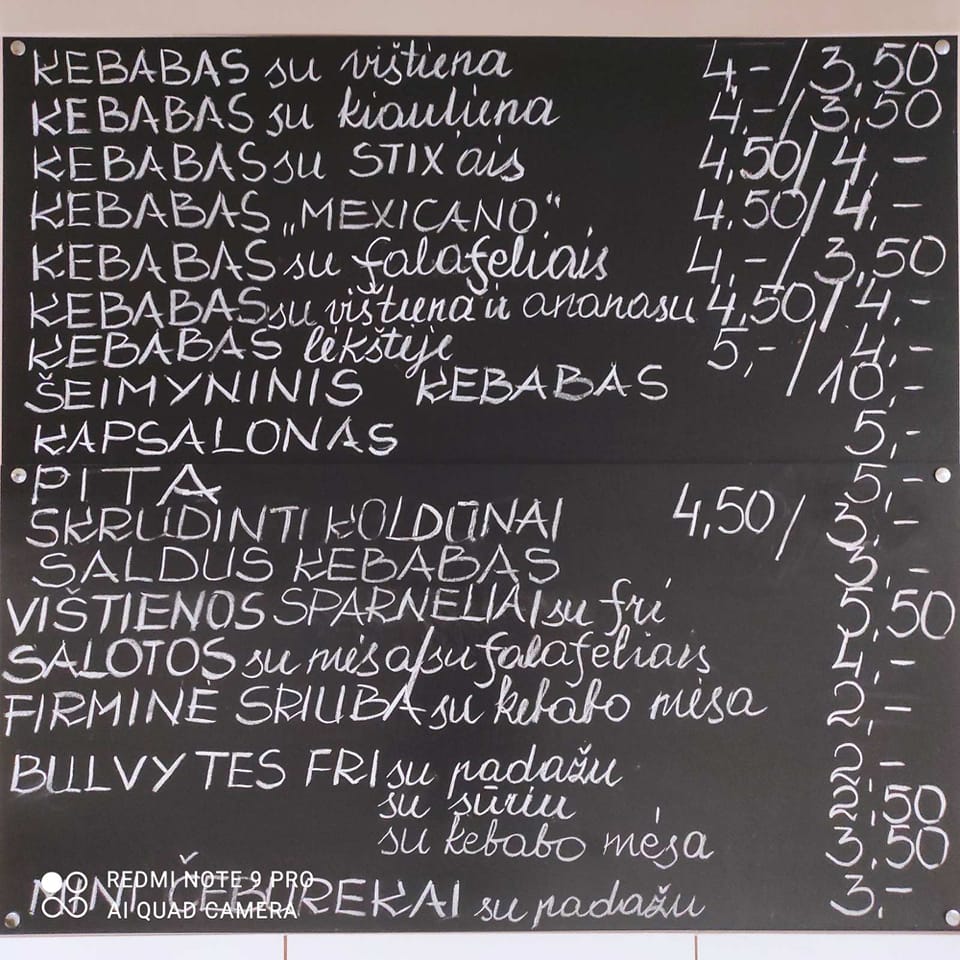 KEBABAS su vištiena 4,-/3,50
KEBABAS su kiauliena 4,-/3,50
KEBABAS su STIX'ais 4,50/4,-
KEBABAS „MEXICANO“ 4,50/4,-
KEBABAS su falafeliais 4,-/3,50
KEBABAS su vištiena ir ananasu 4,50/4,-
KEBABAS lėkštėje 5,-/4,-
ŠEIMYNINIS KEBABAS 10,-
KAPSALONAS 5,-
PITA 5,-
SKRUDINTI KOLDŪNAI 4,50/3,-
SALDUS KEBABAS 3,-
VIŠTIENOS SPARNELIAI su fri 5,50
SALOTOS su mėsa/su falafeliais 4,-
FIRMINE SRIUBA su kebabo mėsa 2,-
BULVYTES FRI su padažu 2,-
su sūriu 2,50
su kebabo mėsa 3,50
MINI ČEBUREKAI su padažu 3,-
REDMI NOTE 9 PRO
AI QUAD CAMERA